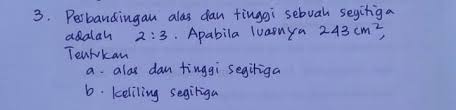 3. Perbandingan alas dan tinggi sebuah segitiga
adalah 2:3. Apabila luasnya 243 cm²,
Tentukan
a. alas dan tinggi segitiga
b. keliling segitiga